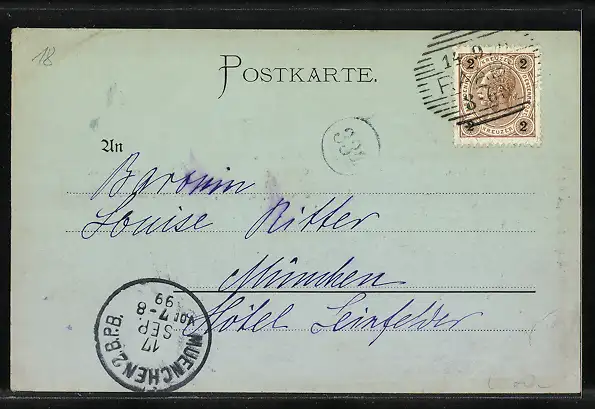 18
POSTKARTE.
14 9
2 KREUZER 2
2 2
332
An
Baronin
Louise Ritter
München
Hôtel Leinfelder
MUENCHEN 2 B.P.B.
17
SEP.
VOR 7-8
99